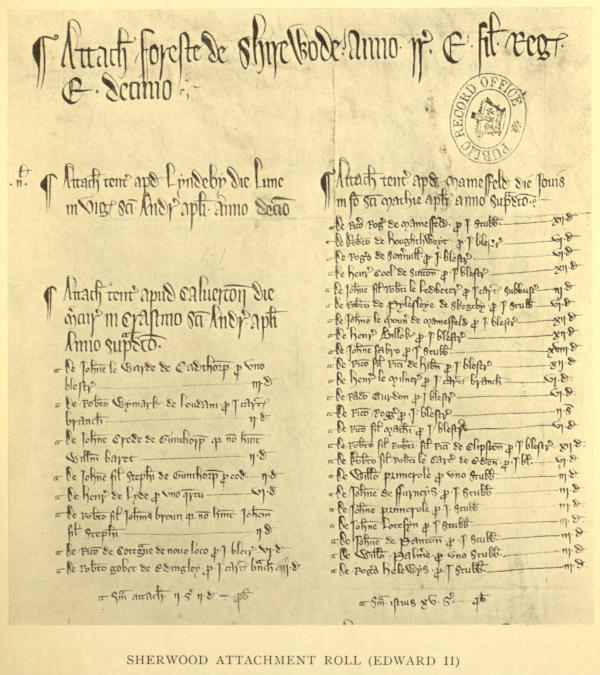 Attach foreste de Shirewode anno rr E fil Reg
E decimo
PUBLIC RECORD OFFICE
Attach tent apd Lyndeby die Lune
in vig sci Andr apli anno decio
Attach tent apud Caluerton die
in crastino sci Andr apli
Anno supdco
de Johne le Warde de Calthorp p vno
blestr iij d
de Robto Wymark de Loudam p j caret
branch ij d
de Johne Crede de Gunthorp q no huit
Willm baret ij d
de Johne fil Stephi de Gunthorp p eod ij d
de Henr de Lyde p vno vj d
de Robto fil Johnis broun q no huit Johem
fil Stephi ij d
de Rico de de nouo loco p j blestr vj d
de Robto gobet de Edingley p j caret bnch iij d
Sm attach ij s ij d pb
Attach tent apd Mamesfeld die Jouis
in fo sci Mathie apli anno supdco
de Rico Rog de Mamesfeld p j stubb xij d
de Robto de p j blestr vj d
de Rogo de Somuill p j blestr vj d
de Henr Cocl de Sutton p j blestr xij d
de Johne fil Robti le Ledbeter p j caret subbusc iij d
de Robto de Pylesleye de Skegeby p j stubb vj d
de Johne le de Mamesfeld p j blestr xij d
de Henr Bullok p j blestr xij d
de Johne fabro p j stubb xviij d
de Rico fil Rici de p j blestr xij d
de Henr le Milner p j caret branch vj d
de Rado Gurdon p j blestr vj d
de Rico Roger p j blestr ij s
de Rico fil Mathi p j blestr vj d
de Robto fil Robti fil Rici de Clipston p j blestr xij d
de Robto fil Robti le Cart de p j bl vj d
de Willo primerole p vno stubb iij d
de Johne de ffurneys p j stubb iij d
de Johne primerole p j stubb iij d
de Johne p j stubb iij d
de Johne de Panton p j stubb iij d
de Willo Palme p vno stubb iij d
de Rogo Helewys p j stubb iij d
Sm istius xv s pb
SHERWOOD ATTACHMENT ROLL (EDWARD II)